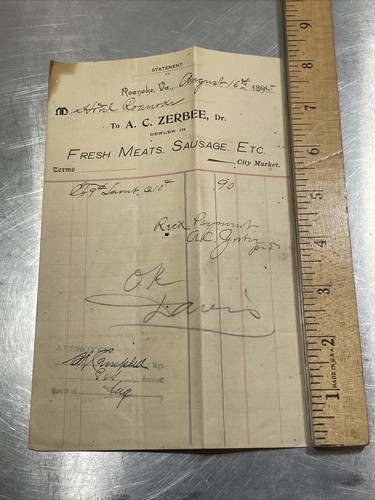 STATEMENT
Roanoke, Va., August 16th 189
M Hotel Roanoke
To A. C. ZERBEE, Dr.
DEALER IN
FRESH MEATS, SAUSAGE, ETC.
Terms City Market.
9 @ 10 90
Recd Payment
A.C.
OK
Davis
APPROVED
Campbell Mgr.
Account
Month of Aug
1 2 3 4 5 6 7 8 9
MADE IN U.S.A.